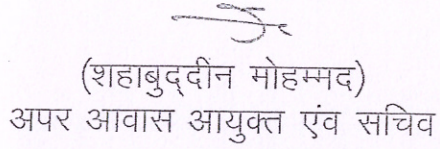 (शहाबुद्दीन मोहम्मद)
अपर आवास आयुक्त एंव सचिव